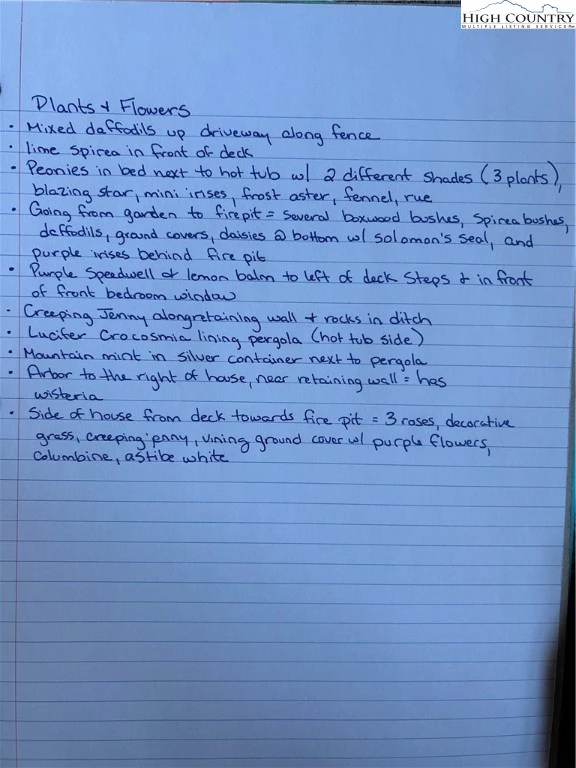 HIGH COUNTRY
MULTIPLE LISTING SERVICE
Plants & Flowers
• Mixed daffodils up driveway along fence
• lime spirea in front of deck
• Peonies in bed next to hot tub w/ 2 different shades (3 plants),
blazing star, mini irises, frost aster, fennel, rue
• Going from garden to firepit = several boxwood bushes, spirea bushes,
daffodils, ground covers, daisies @ bottom w/ solomon's seal, and
purple irises behind fire pit
• Purple Speedwell & lemon balm to left of deck steps & in front
of front bedroom window
• Creeping Jenny along retaining wall & rocks in ditch
• Lucifer Crocosmia lining pergola (hot tub side)
• Mountain mint in silver container next to pergola
• Arbor to the right of house, near retaining wall = has
wisteria
• Side of house from deck towards fire pit = 3 roses, decorative
grass, creeping jenny, vining ground cover w/ purple flowers,
columbine, astibe white